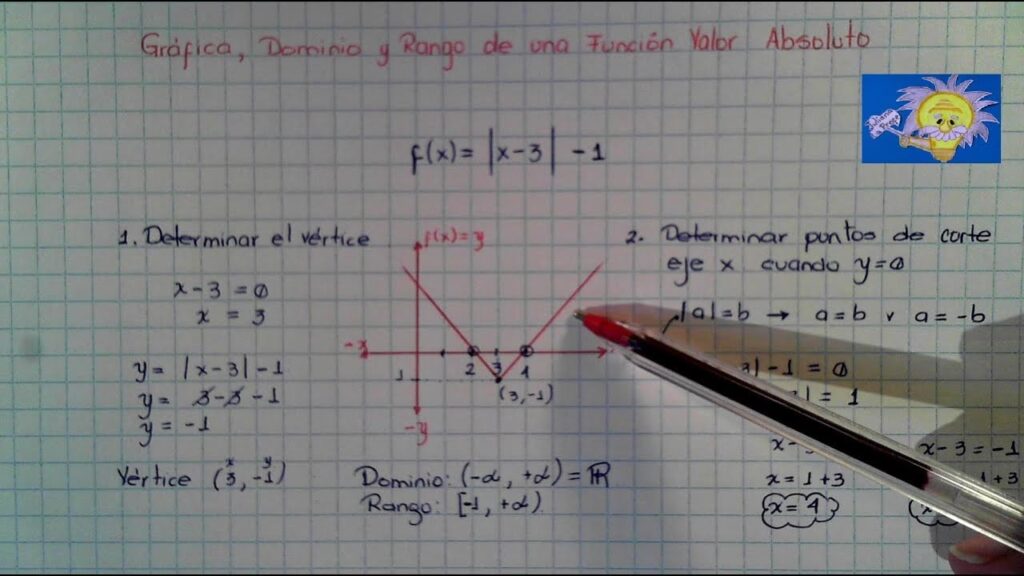 Gráfica, Dominio y Rango de una Función Valor Absoluto
f(x) = |x-3| -1
1. Determinar el vértice
x-3 = 0
x = 3
y = |x-3| -1
y = 3-3 -1
y = -1
x y
Vértice (3,-1)
f(x)=y
-x
2 3 4
1
(3,-1)
-y
Dominio: (-∞, +∞) = ℝ
Rango: [-1, +∞)
2. Determinar puntos de corte
eje x cuando y=0
|a|=b → a=b v a=-b
3|-1 = 0
| = 1
x-
x = 1+3
x = 4
x-3 = -1
1+3
x